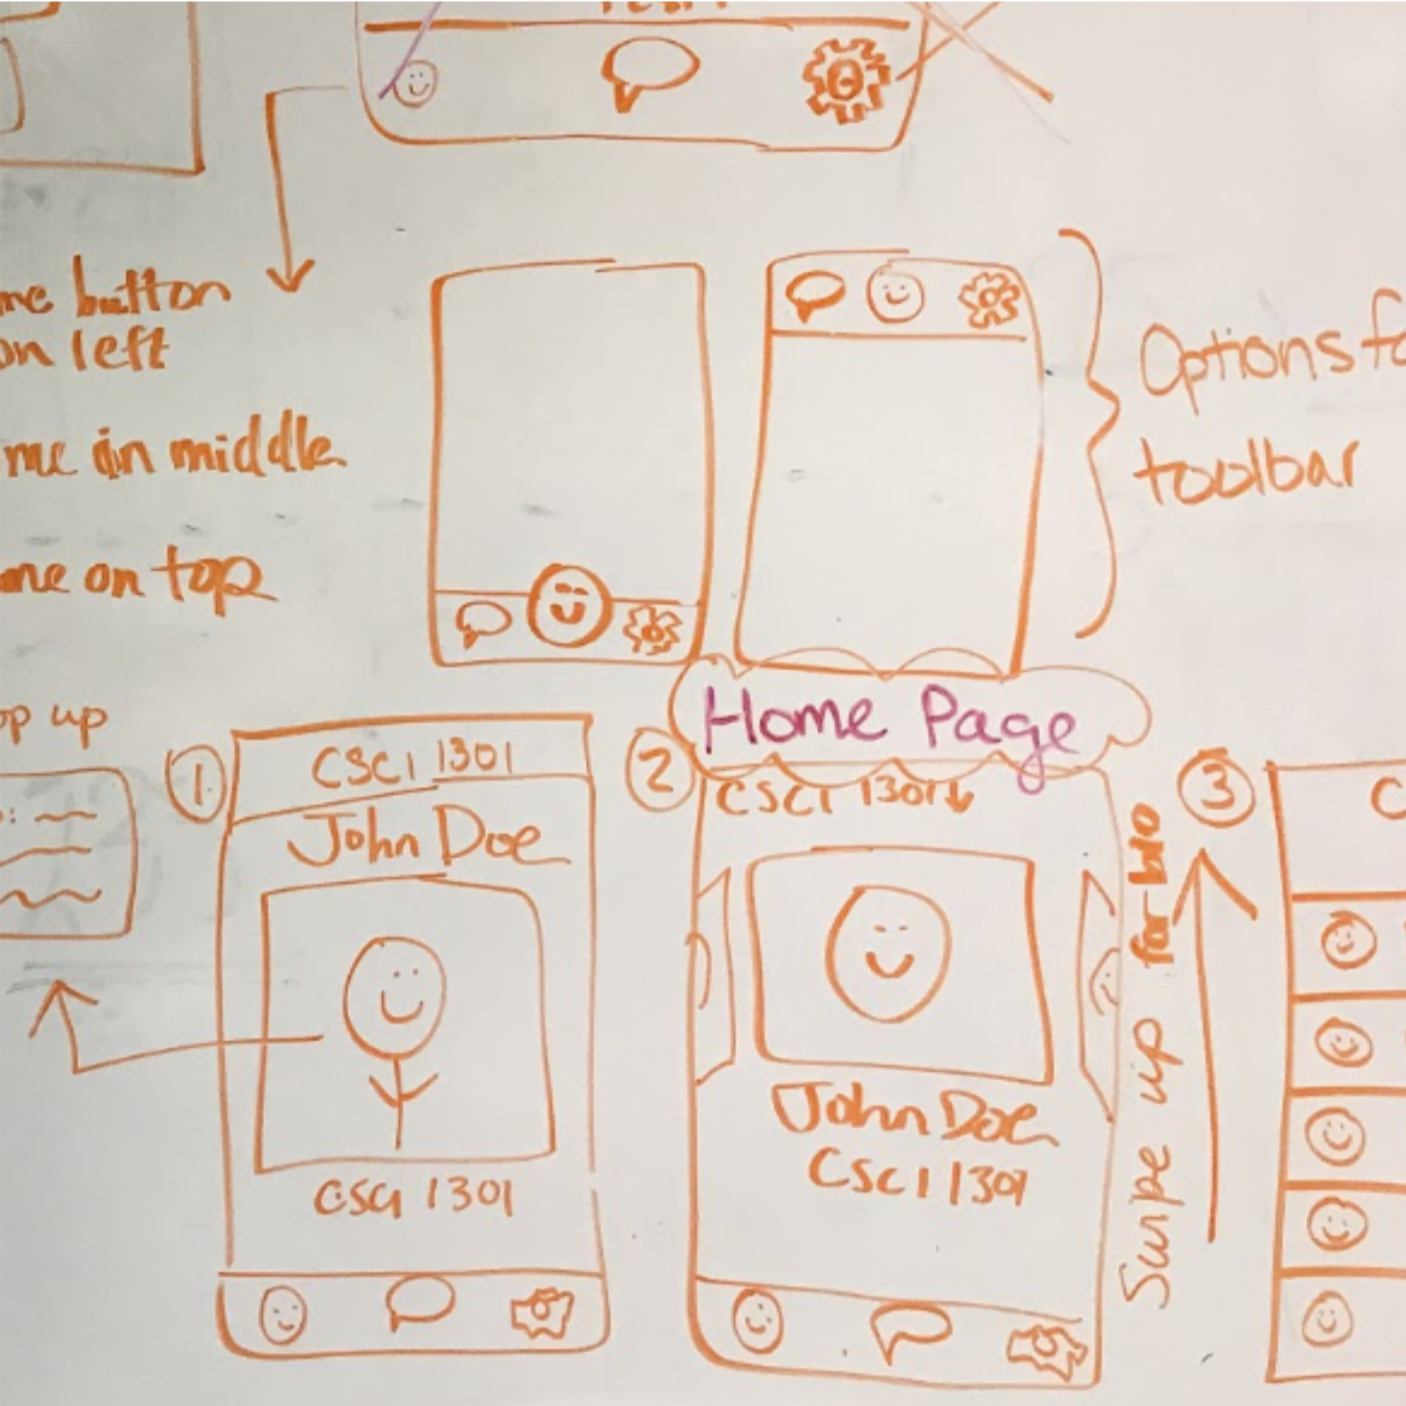 me button
on left
me in middle
me on top
Options fo
toolbar
op up
Home Page
1
CSCI 1301
John Doe
CSCI 1301
2
CSCI 1301↓
John Doe
CSCI 1301
Swipe up for bio
3
C